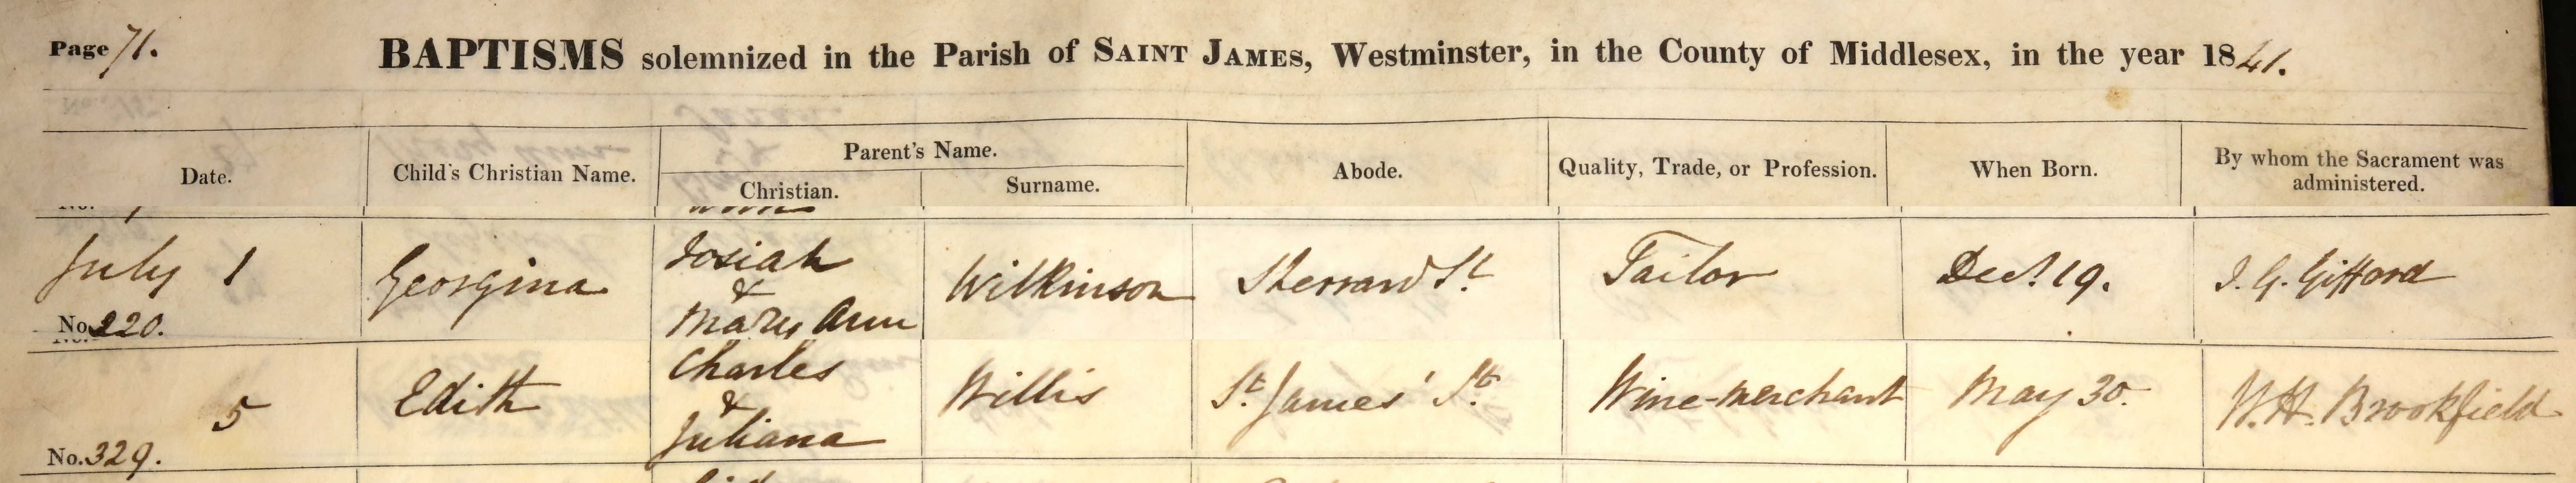 Page 71.
BAPTISMS solemnized in the Parish of SAINT JAMES, Westminster, in the County of Middlesex, in the year 1841.
Date. Child's Christian Name. Parent's Name. Abode. Quality, Trade, or Profession. When Born. By whom the Sacrament was administered.
Christian. Surname.
July 1 Georgina Josiah & Mary Ann Wilkinson Sherrard St. Tailor Decr. 19. J. G. Gifford
No. 220.
5 Edith Charles & Juliana Willis St. James' St. Wine-merchant May 30. W. H. Brookfield
No. 329.